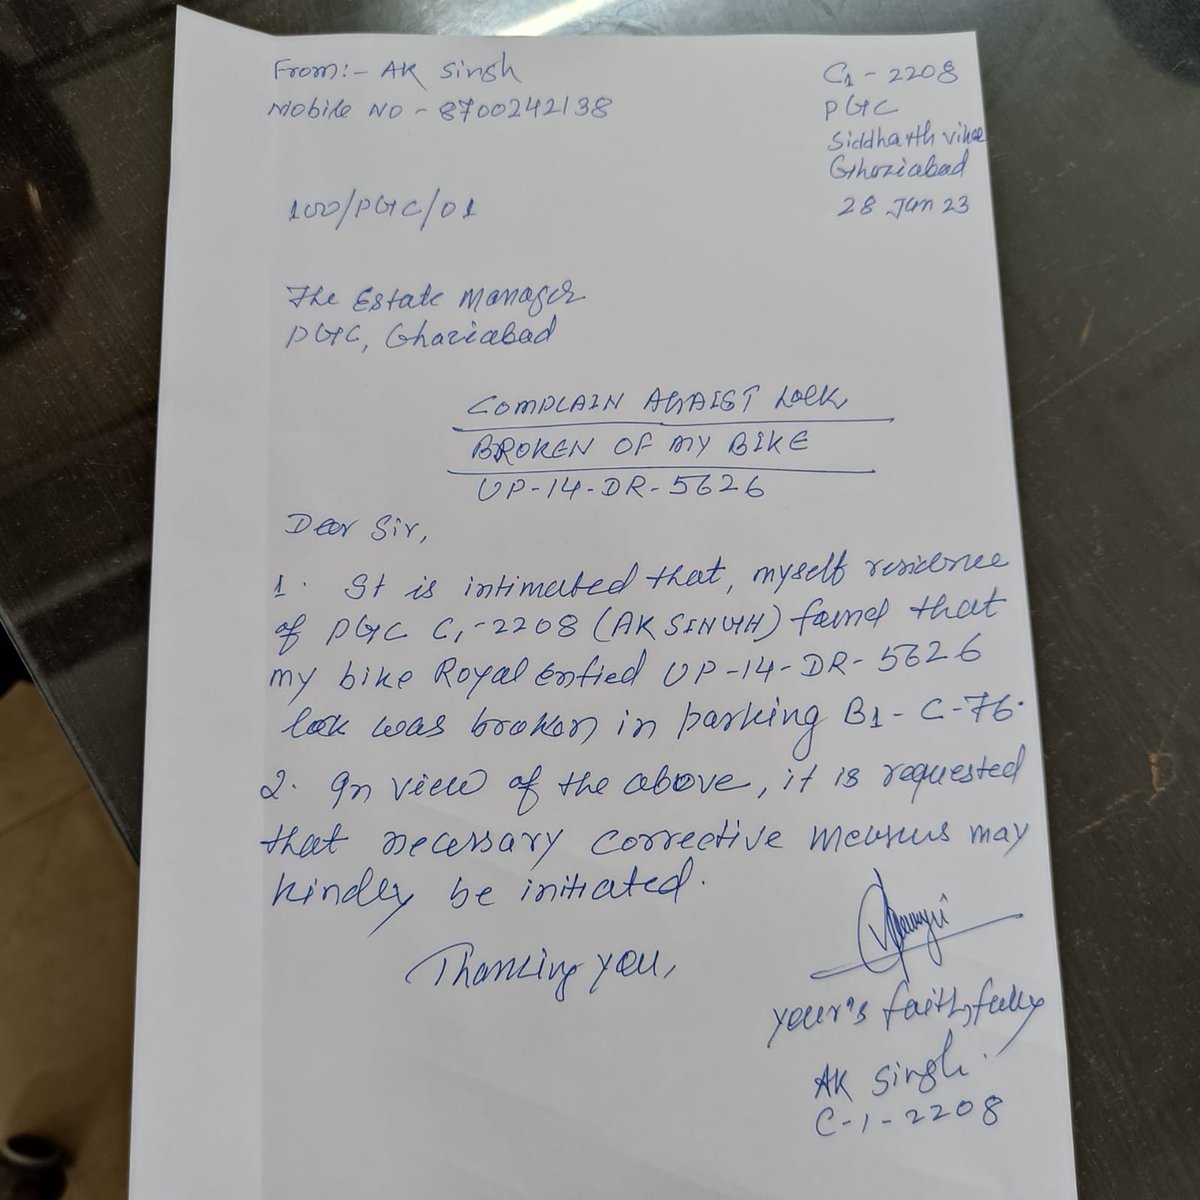 From:- AK Singh
Mobile NO - 8700242138
C1 - 2208
PGC
Siddharth vihar
Ghaziabad
28 Jan 23
100/PGC/01
The Estate Manager
PGC, Ghaziabad
COMPLAIN AGAIST LOCK
BROKEN OF MY BIKE
UP-14-DR-5626
Dear Sir,
1. It is intimated that, myself residence
of PGC C1-2208 (AK SINGH) found that
my bike Royal Enfied UP-14-DR-5626
lok was broken in parking B1-C-76.
2. In view of the above, it is requested
that necessary corrective measures may
kindly be initiated.
Thanking you,
your's faithfully
AK Singh.
C-1-2208